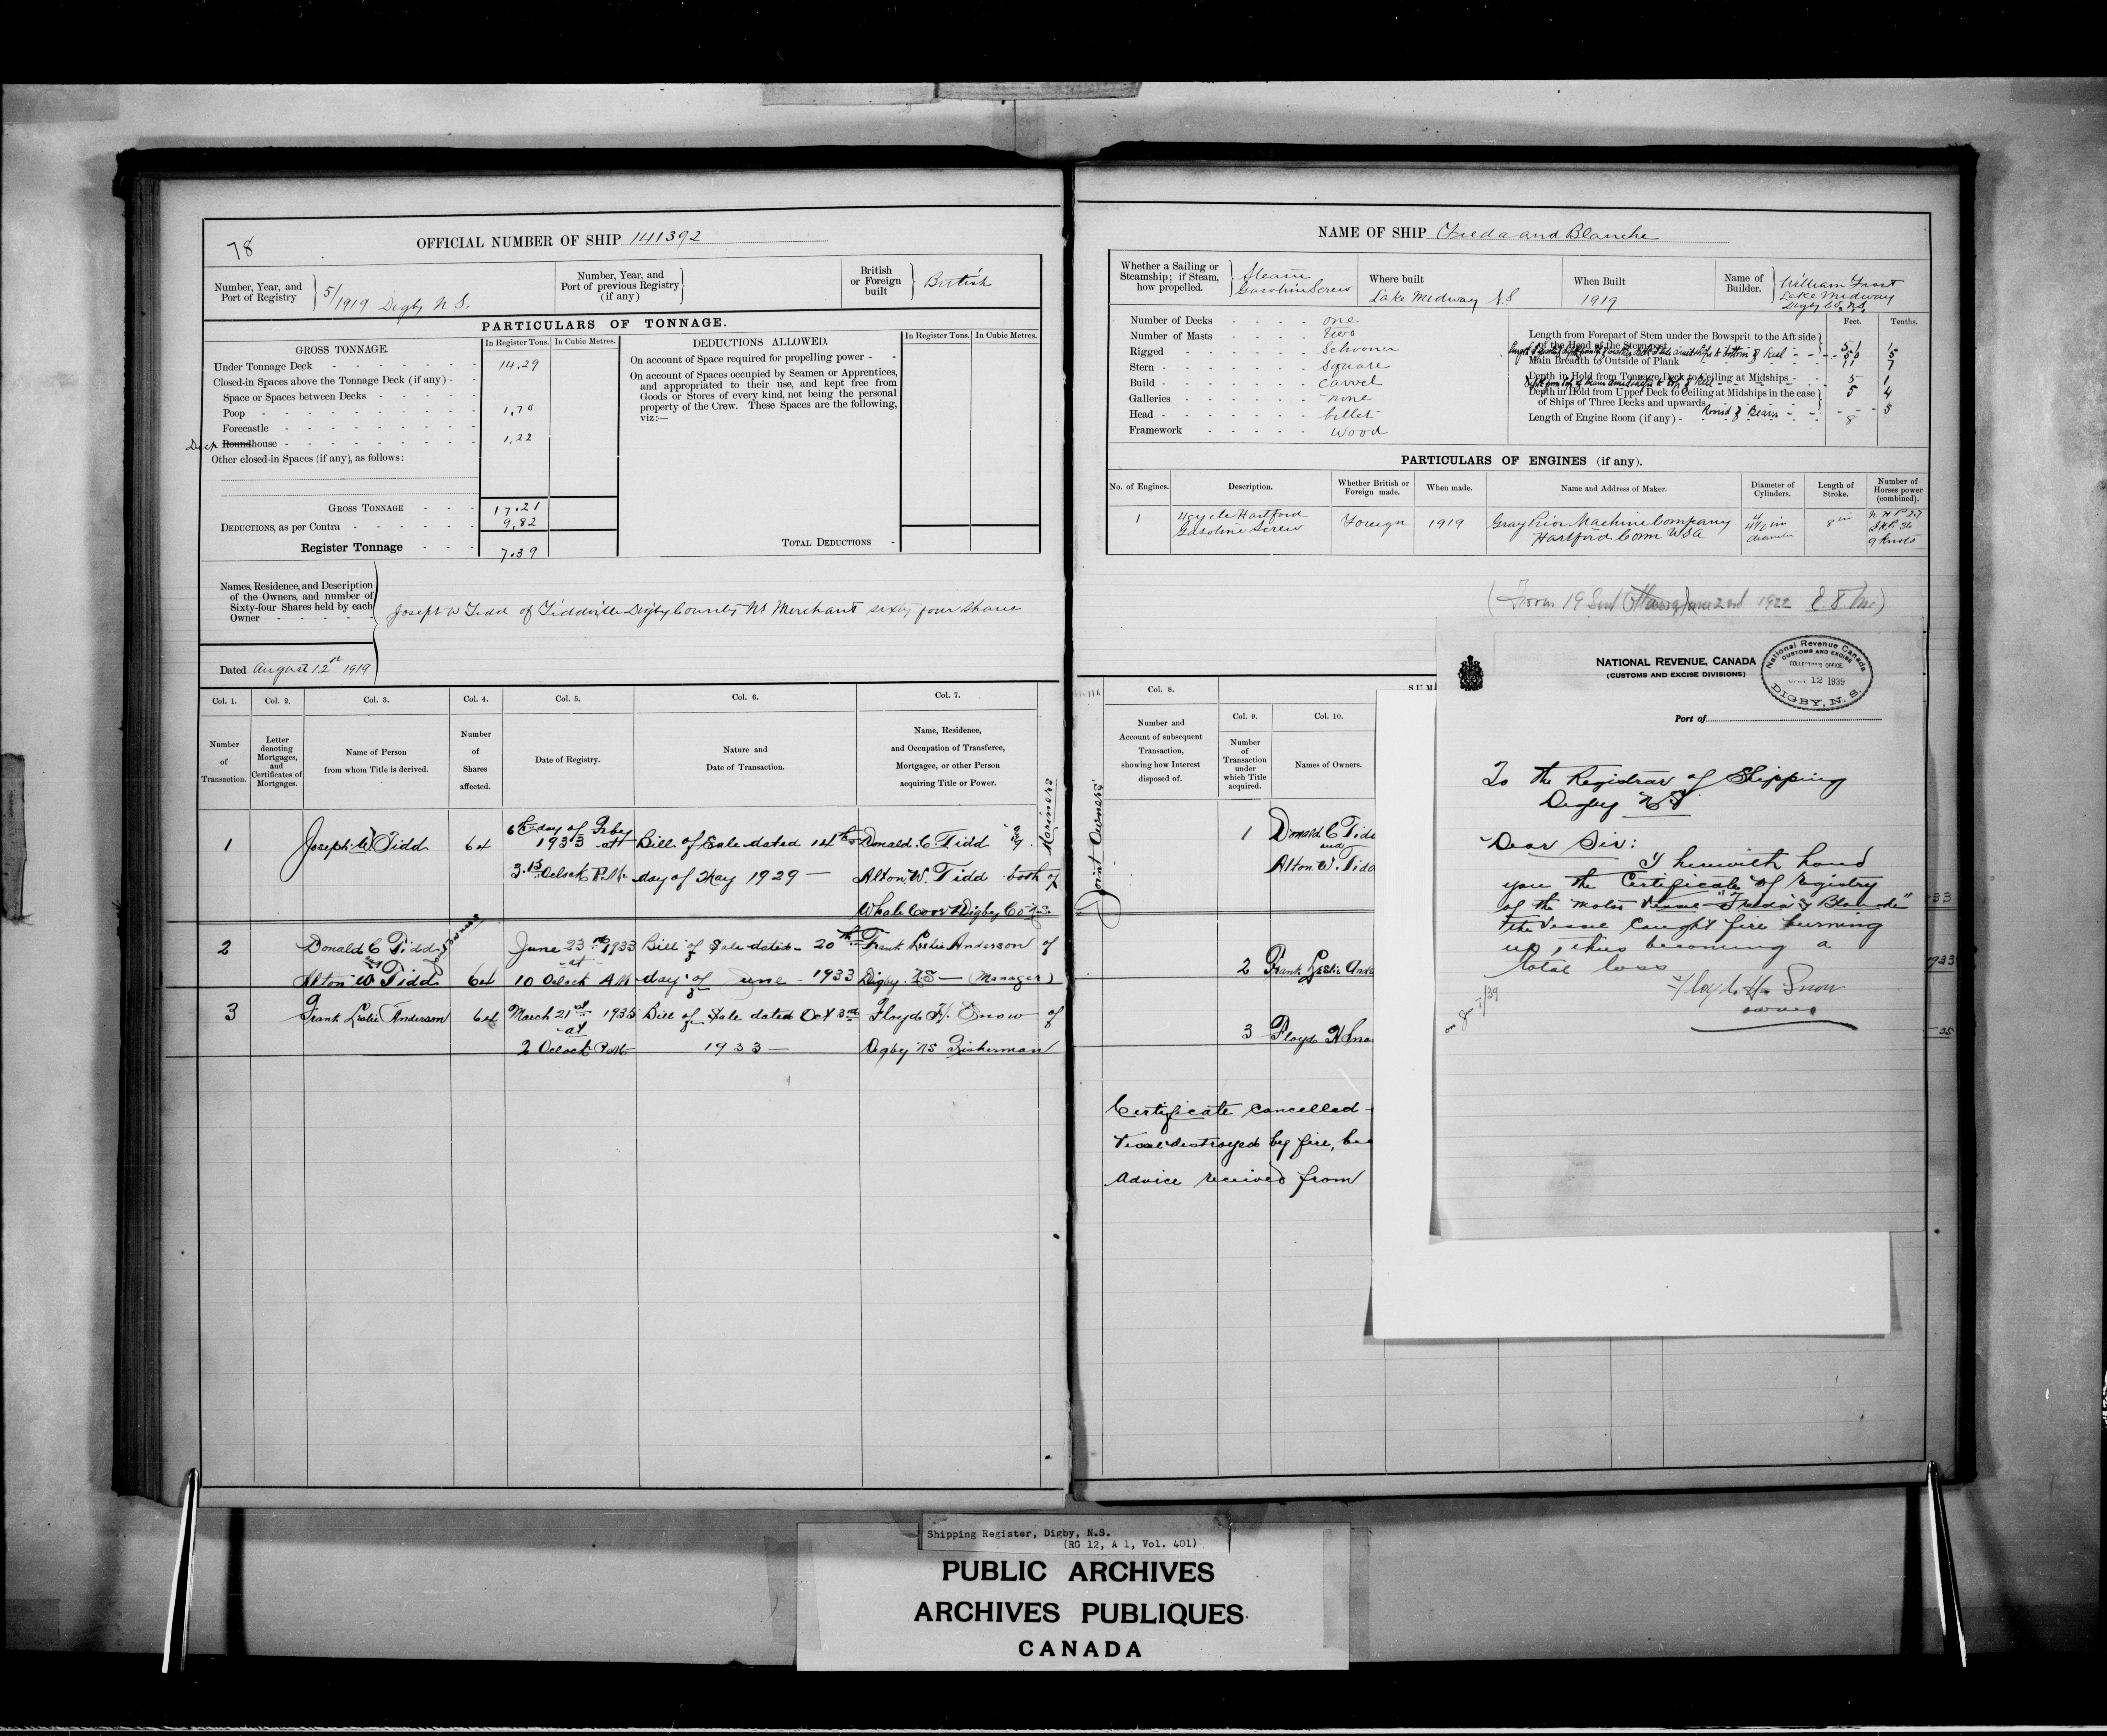 78
OFFICIAL NUMBER OF SHIP 141392
Number, Year, and Port of Registry
5/1919 Digby N S.
Number, Year, and Port of previous Registry (if any)
British or Foreign built
British
PARTICULARS OF TONNAGE.
GROSS TONNAGE.
In Register Tons. In Cubic Metres.
Under Tonnage Deck 14.29
Closed-in Spaces above the Tonnage Deck (if any)
Space or Spaces between Decks
Poop 1,70
Forecastle
Deck Roundhouse 1,22
Other closed-in Spaces (if any), as follows:
GROSS TONNAGE 17.21
DEDUCTIONS, as per Contra 9,82
Register Tonnage 7.39
DEDUCTIONS ALLOWED.
In Register Tons. In Cubic Metres.
On account of Space required for propelling power
On account of Spaces occupied by Seamen or Apprentices,
and appropriated to their use, and kept free from
Goods or Stores of every kind, not being the personal
property of the Crew. These Spaces are the following,
viz:—
TOTAL DEDUCTIONS
Names, Residence, and Description
of the Owners, and number of
Sixty-four Shares held by each
Owner
Joseph W Tidd of Tiddville Digby County NS Merchant sixty four shares
Dated August 12th 1919
Col. 1. Col. 2. Col. 3. Col. 4. Col. 5. Col. 6. Col. 7.
Number of Transaction.
Letter denoting Mortgages, and Certificates of Mortgages.
Name of Person from whom Title is derived.
Number of Shares affected.
Date of Registry.
Nature and Date of Transaction.
Name, Residence, and Occupation of Transferee, Mortgagee, or other Person acquiring Title or Power.
1 Joseph W Tidd 64
6th day of Feby 1933 att
3.15 Oclock P.M.
Bill of Sale dated 14th
day of May 1929 —
Donald C Tidd &
Alton W. Tidd both of
Whale Cove Digby Co N.S.
Mariners
2 Donald C Tidd
and
Alton W Tidd 64
Joint Owners
June 23rd 1933
at
10 Oclock AM
Bill of Sale dated 20th
day of June 1933
Frank Leslie Anderson of
Digby. NS — (Manager)
3 Frank Leslie Anderson 64
March 21st 1935
at
2 Oclock P.M
Bill of Sale dated Oct 3rd
1933 —
Floyd H. Snow of
Digby NS Fisherman
NAME OF SHIP Freda and Blanche
Whether a Sailing or Steamship; if Steam, how propelled.
Steam
Gasoline Screw
Where built
Lake Midway N.S
When Built
1919
Name of Builder.
William Frost
Lake Midway
Digby Co. N.S.
Number of Decks one
Number of Masts two
Rigged Schooner
Stern Square
Build carvel
Galleries none
Head billet
Framework Wood
Feet. Tenths.
Length from Forepart of Stem under the Bowsprit to the Aft side
of the Head of the Sternpost 51 1
50 5
Main Breadth to Outside of Plank 11 7
Depth in Hold from Tonnage Deck to Ceiling at Midships 5 1
Depth in Hold from Upper Deck to Ceiling at Midships in the case
of Ships of Three Decks and upwards 5 4
Round of Beam 3
Length of Engine Room (if any) 8
PARTICULARS OF ENGINES (if any).
No. of Engines. Description. Whether British or Foreign made. When made. Name and Address of Maker. Diameter of Cylinders. Length of Stroke. Number of Horses power (combined).
1
4cycle Hartford
Gasoline Screw
Foreign
1919
Gray Prior Machine Company
Hartford Conn USA
diameter
8 in
9 Knots
(Form 19 Sent Ottawa June 2nd 1922
Col. 8.
Number and Account of subsequent Transaction, showing how Interest disposed of.
SUM
Col. 9. Col. 10.
Number of Transaction under which Title acquired.
Names of Owners.
Joint Owners
1 Donald C Tidd
and
Alton W. Tidd
2 Frank Leslie And
3 Floyd H Sno
Certificate cancelled
Vessel destroyed by fire,
Advice received from
33
1933
35
NATIONAL REVENUE, CANADA
(CUSTOMS AND EXCISE DIVISIONS)
National Revenue Canada
CUSTOMS AND EXCISE
COLLECTOR'S OFFICE
JAN. 12 1939
DIGBY, N. S.
Port of
To the Registrar of Shipping
Digby N.S
Dear Sir:
I herewith hand
you the Certificate of registry
of the motor vessel "Freda & Blanche"
the vessel caught fire burning
up, thus becoming a
total loss
Floyd H. Snow
owner
Shipping Register, Digby, N.S.
(RG 12, A 1, Vol. 401)
PUBLIC ARCHIVES
ARCHIVES PUBLIQUES
CANADA